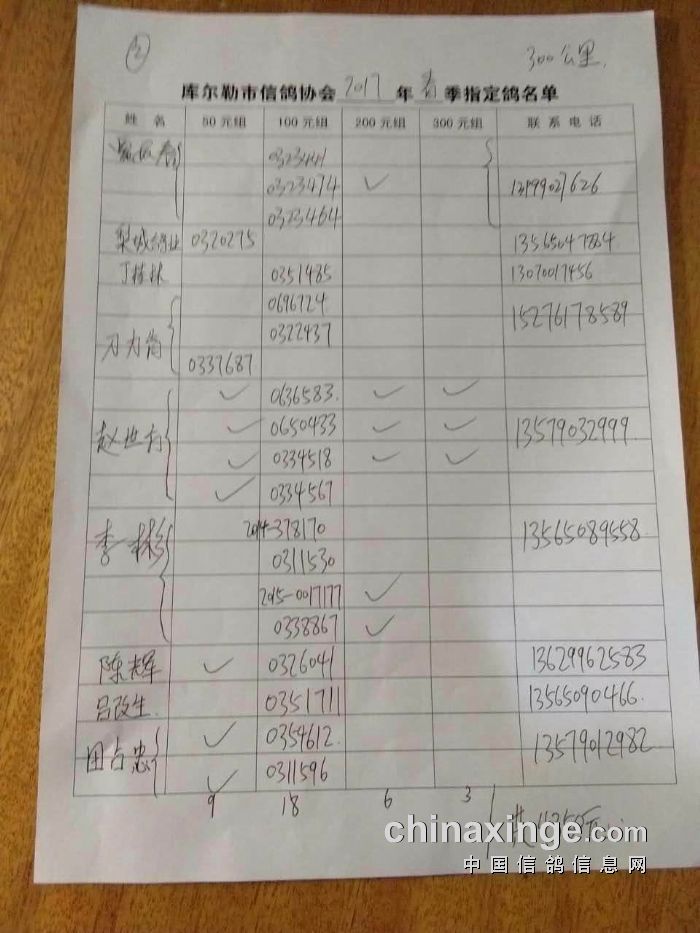 ② 300公里.
库尔勒市信鸽协会 2017 年 春 季指定鸽名单
姓 名 50元组 100元组 200元组 300元组 联系电话
0323474 ✓ 13999027626
0323464
梨城鸽业 0320275 13565047884.
丁桂林 0351485 13070017456
0696724 15276178589
0322437
0337687
✓ 0636583. ✓ ✓
赵世 ✓ 0650433 ✓ ✓ 13579032999.
✓ 0334518 ✓ ✓
✓ 0334567
李彬 2014-378170 13565089558.
0311530
2015-0017177 ✓
0338867 ✓
陈辉 ✓ 0326041 13629962583
吕改生. 0351711 13565090466.
田占忠 ✓ 0354612. 13579012982
✓ 0311596
9 18 6 3 共
chinaxinge.com
中国信鸽信息网